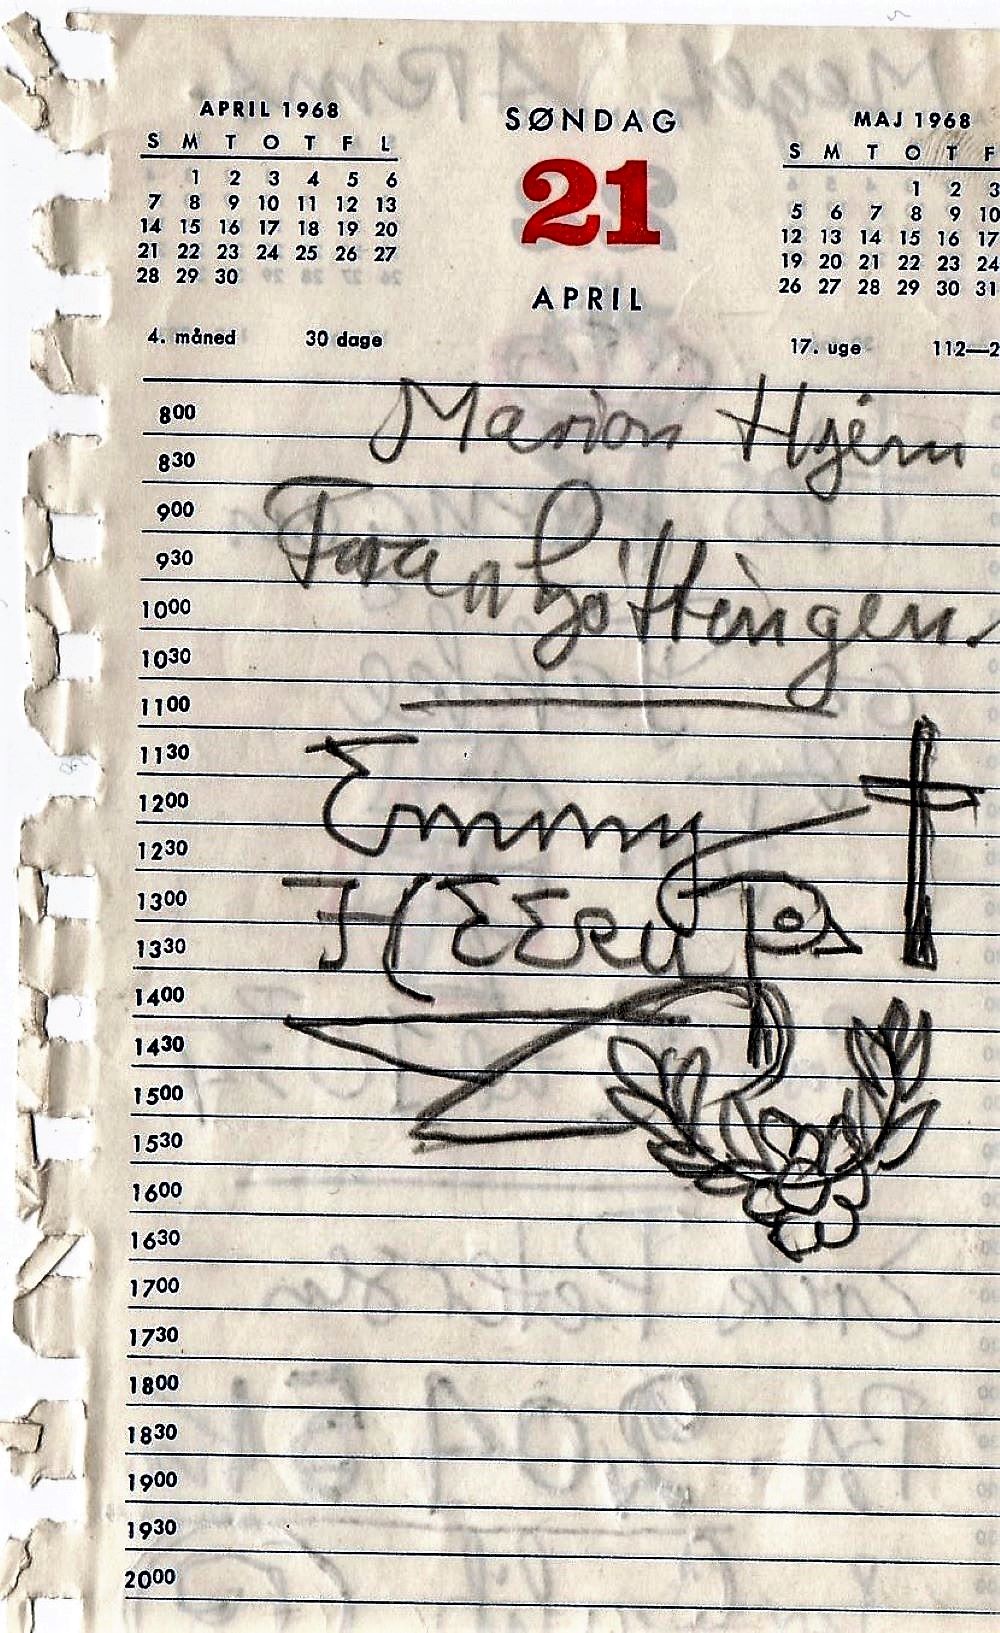 APRIL 1968
S M T O T F L
1 2 3 4 5 6
7 8 9 10 11 12 13
14 15 16 17 18 19 20
21 22 23 24 25 26 27
28 29 30
4. måned 30 dage
SØNDAG
21
APRIL
MAJ 1968
S M T O T F
1 2 3
5 6 7 8 9 10
12 13 14 15 16 17
19 20 21 22 23 24
26 27 28 29 30 31
17. uge 112—2
800
830
900
930
1000
1030
1100
1130
1200
1230
1300
1330
1400
1430
1500
1530
1600
1630
1700
1730
1800
1830
1900
1930
2000
Marion Hjérn
Fra Göttingen
Emmy
HEEru